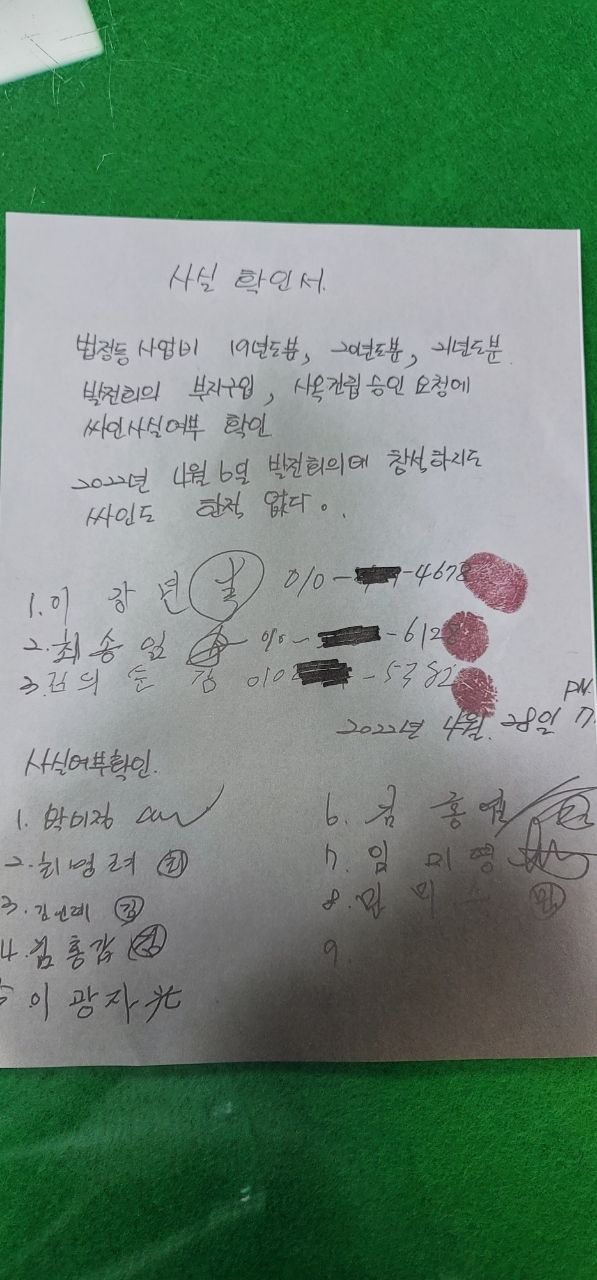 사실 확인서.
법정동 사업비 19년도분, 20년도분, 21년도분
발전회의 부지구입, 사옥건립 승인 요청에
싸인사실여부 확인
2022년 4월 6일 발전회의때 참석하지도
싸인도 한적 없다.
1. 이 강 년 010- -4678
2. 최 송 임 010- -6128
3. 김 의 순 김 010 -5382
2022년 4월 28일
사실여부확인.
1. 박미정
2. 최영려 최
3. 김 김
4. 김홍갑 김
5 이광자 光
6. 김 홍
7. 임 미 영
8.
9.